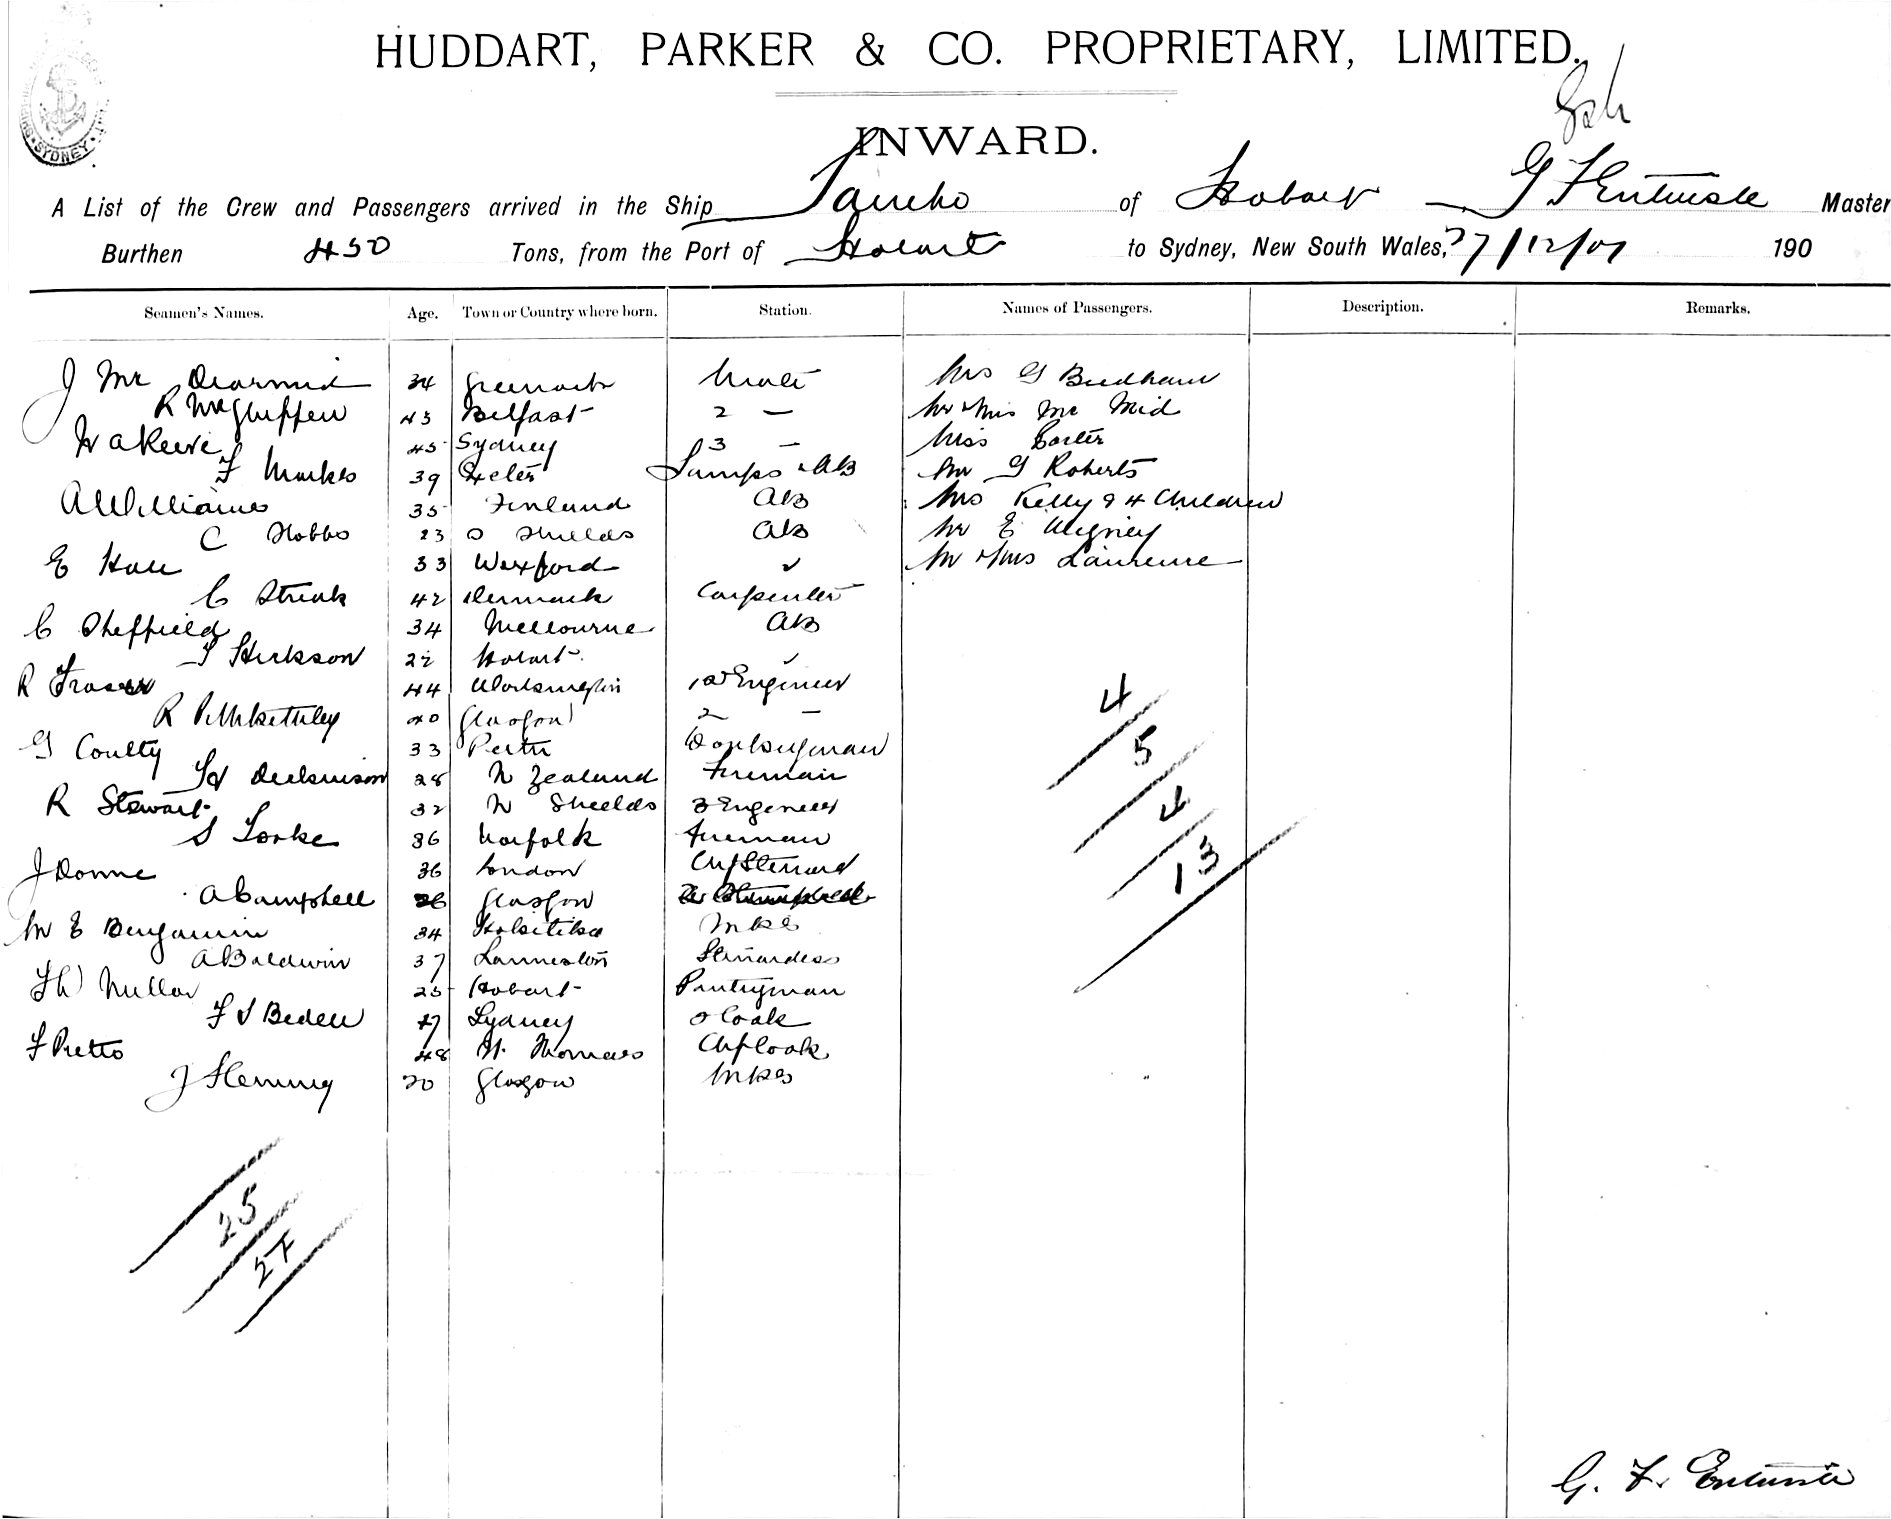 HUDDART, PARKER & CO. PROPRIETARY, LIMITED.
INWARD.
SYDNEY
A List of the Crew and Passengers arrived in the Ship of Hobart G F Entwisle Master
Burthen 450 Tons, from the Port of Hobart to Sydney, New South Wales, 27/12/07 190
Seamen's Names. Age. Town or Country where born. Station. Names of Passengers. Description. Remarks.
J Mc Diarmid 34 Greenock Mate Mrs G
R 43 Belfast 2 — Mr & Mrs Mc Mid
W A Reeve 45 Sydney 3 — Miss Carter
F Markes 39 Exeter Lamps & AB Mr G Roberts
A Williams 35 Finland AB Mrs Kelly & 4 Children
C Hobbs 23 S Shields AB Mr E
E Hall 33 Wexford Mr & Mrs Laurence
C 42 Denmark Carpenter
C Sheffield 34 Melbourne AB
Hickson 22 Hobart
R Fraser 44 Workington 1st Engineer
R 40 Glasgow 2 —
G Coulty 33 Perth Donkeyman
Dickinson 28 N Zealand Fireman
R Stewart 32 N Shields 3 Engineer
S Locke 36 Norfolk Fireman
J Donne 36 London Chf Steward
A Campbell Glasgow
E Benjamin 34 Hokitika
A Baldwin 37 Launceston Stewardess
Millar 25 Hobart Pantryman
F S Bedell 47 Sydney Cook
F Pretto 48 St. Thomas Chf Cook
J Fleming 20 Glasgow
4
5
4
13
25
27
G. F. Entwisle